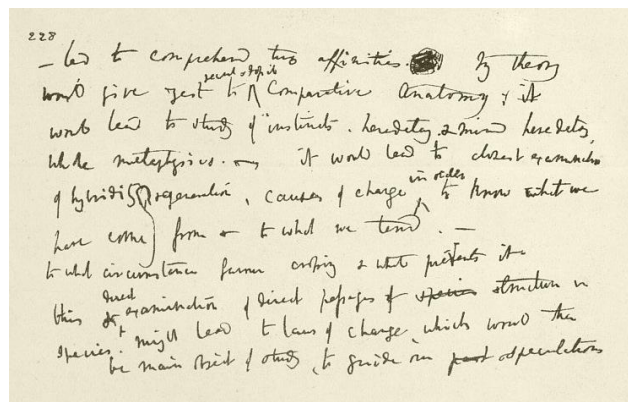 228
— led to comprehend true affinities. My theory
would give zest to recent & fossil Comparative Anatomy, & it
would lead to study of instincts, heredity & mind heredity,
whole metaphysics. — it would lead to closest examination
of hybridity regeneration, causes of change in order to know what we
have come from & to what we tend. —
to what circumstances favour crossing & what prevents it —
this & direct examination of direct passages of species structure in
species, might lead to laws of change, which would then
be main object of study, to guide our past speculations